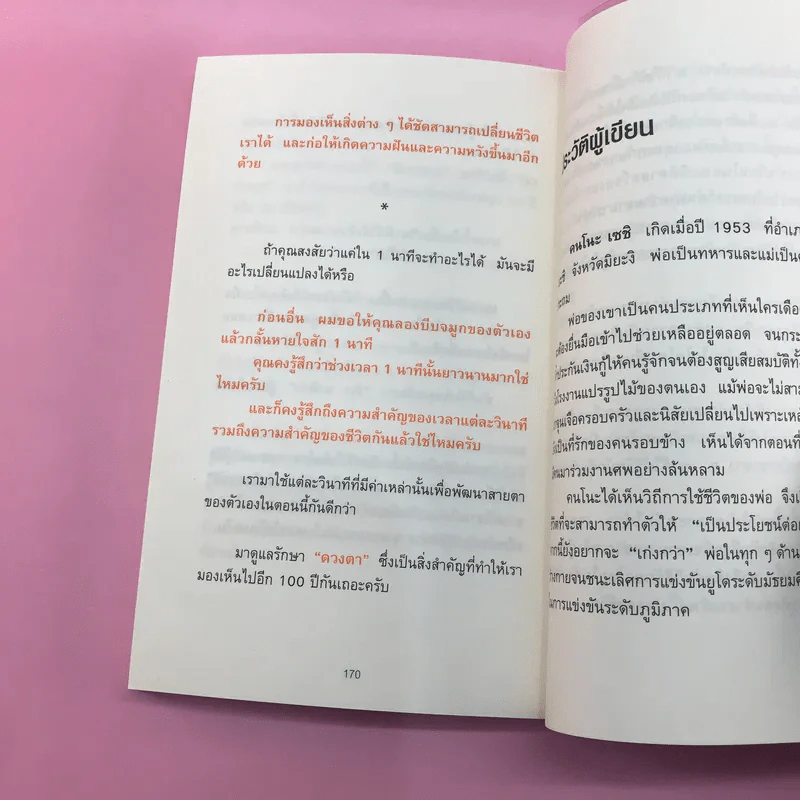 การมองเห็นสิ่งต่าง ๆ ได้ชัดสามารถเปลี่ยนชีวิต
เราได้ และก่อให้เกิดความฝันและความหวังขึ้นมาอีก
ด้วย
*
ถ้าคุณสงสัยว่าแค่ใน 1 นาทีจะทำอะไรได้ มันจะมี
อะไรเปลี่ยนแปลงได้หรือ
ก่อนอื่น ผมขอให้คุณลองบีบจมูกของตัวเอง
แล้วกลั้นหายใจสัก 1 นาที
คุณคงรู้สึกว่าช่วงเวลา 1 นาทีนั้นยาวนานมากใช่
ไหมครับ
และก็คงรู้สึกถึงความสำคัญของเวลาแต่ละวินาที
รวมถึงความสำคัญของชีวิตกันแล้วใช่ไหมครับ
เรามาใช้แต่ละวินาทีที่มีค่าเหล่านั้นเพื่อพัฒนาสายตา
ของตัวเองในตอนนี้กันดีกว่า
มาดูแลรักษา “ดวงตา” ซึ่งเป็นสิ่งสำคัญที่ทำให้เรา
มองเห็นไปอีก 100 ปีกันเถอะครับ
170
ระวัติผู้เขียน
คนโนะ เซชิ เกิดเมื่อปี 1953 ที่อำเภ
จังหวัดมิยะงิ พ่อเป็นทหารและแม่เป็น
พ่อของเขาเป็นคนประเภทที่เห็นใครเดือ
ต้องยื่นมือเข้าไปช่วยเหลืออยู่ตลอด จนกระ
ประกันเงินกู้ให้คนรู้จักจนต้องสูญเสียสมบัติทั้
โรงงานแปรรูปไม้ของตนเอง แม้พ่อจะไม่สาม
จุนเจือครอบครัวและนิสัยเปลี่ยนไปเพราะเหล
เป็นที่รักของคนรอบข้าง เห็นได้จากตอนที่
คนมาร่วมงานศพอย่างล้นหลาม
คนโนะได้เห็นวิถีการใช้ชีวิตของพ่อ จึงเ
ชีวิตที่จะสามารถทำตัวให้ “เป็นประโยชน์ต่อ
กนี้ยังอยากจะ “เก่งกว่า” พ่อในทุก ๆ ด้าน
างกายจนชนะเลิศการแข่งขันยูโดระดับมัธยม
ในการแข่งขันระดับภูมิภาค